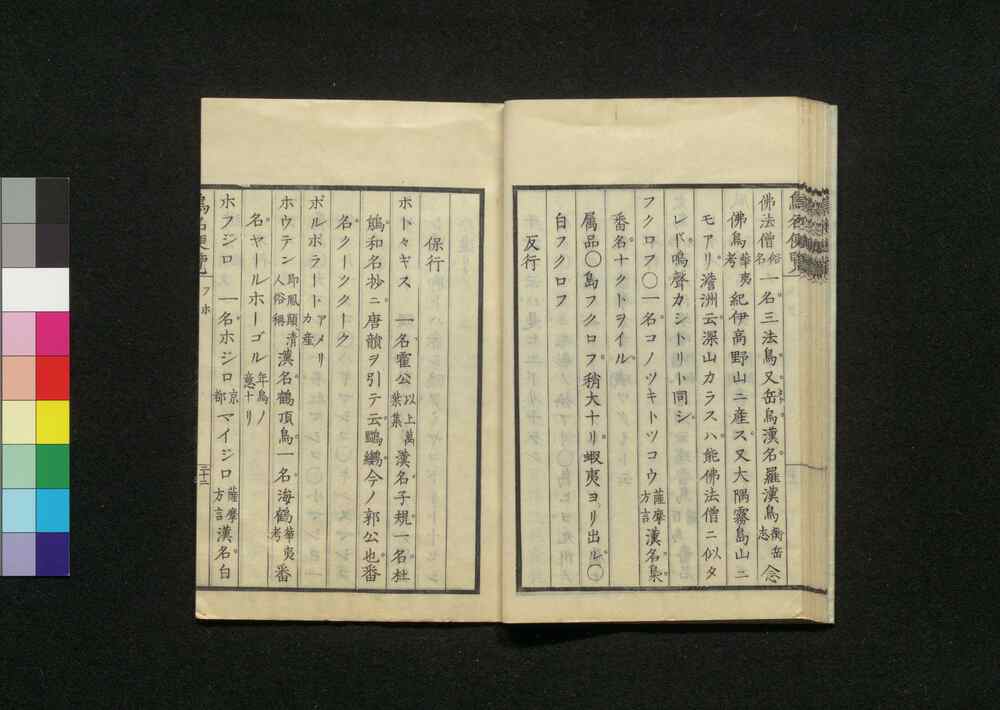 佛法僧俗名 一名三法鳥又岳鳥漢名羅漢鳥衡岳志 念
佛鳥華夷考 紀伊高野山ニ産ス又大隅霧島山ニ
モアリ澹洲云深山カラスハ能佛法僧ニ似タ
レド鳴聲カシトリト同シ
フクロフ〇一名コノツキトツコウ薩摩方言 漢名梟
番名ナクトヲイル
属品〇島フクロフ稍大ナリ蝦夷ヨリ出ル〇
白フクロフ
反行
保行
ホトヽギス 一名霍公以上萬葉集 漢名子規一名杜
鵑和名抄ニ唐韻ヲ引テ云 今ノ郭公也番
名クークククーク
ボルボラート アメリカ産
ホウテン 即鳳頭清人俗稱 漢名鶴頂鳥一名海鶴華夷考 番
名ヤールホーゴル年鳥ノ意ナリ
ホフジロ 一名ホジロ京都 マイジロ薩摩方言 漢名白
鳥名便覧 フホ 三十二